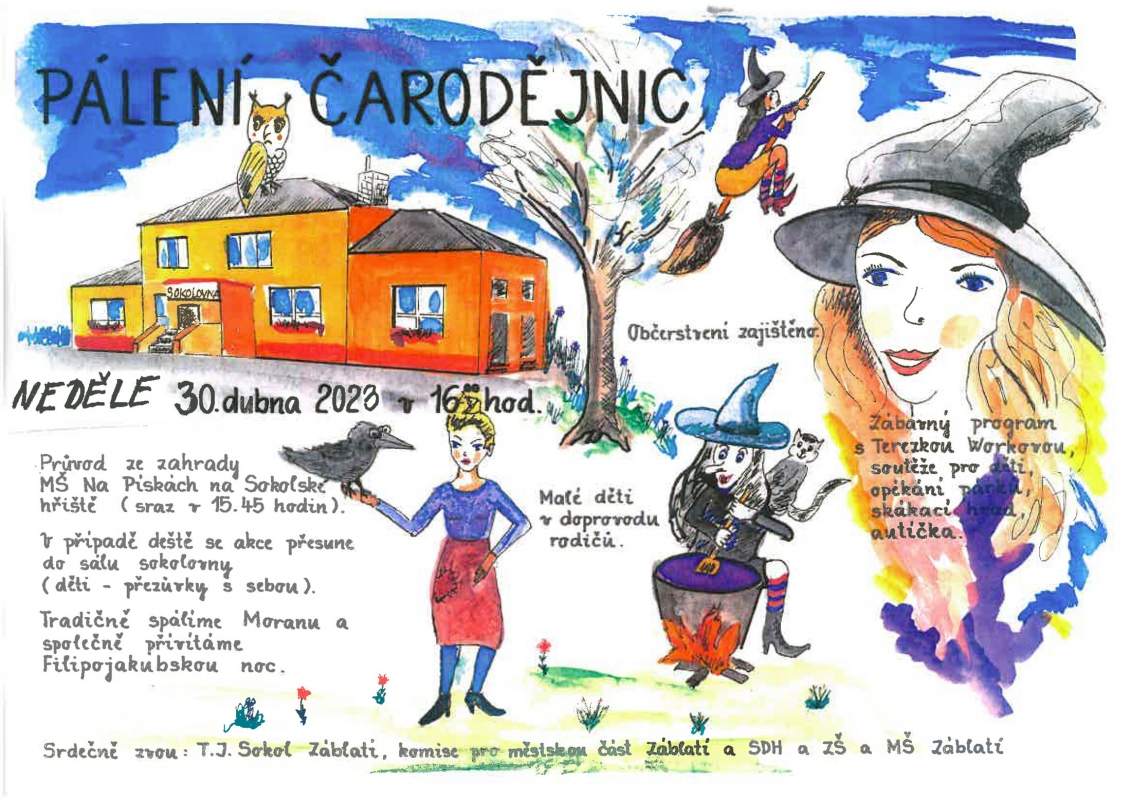 PÁLENÍ ČARODĚJNIC
SOKOLOVNA
Občerstvení zajištěno.
NEDĚLE 30. dubna 2023 v 16:00 hod.
Průvod ze zahrady
MŠ Na Pískách na Sokolské
hřiště (sraz v 15.45 hodin).
V případě deště se akce přesune
do sálu sokolovny
(děti - přezůvky s sebou).
Tradičně spálíme Moranu a
společně přivítáme
Filipojakubskou noc.
Malé děti
v doprovodu
rodičů.
Zábavný program
s Terezkou Workovou,
soutěže pro děti,
opékání párků,
skákací hrad,
autíčka.
Srdečně zvou: T.J. Sokol Záblatí, komise pro městskou část Záblatí a SDH a ZŠ a MŠ Záblatí